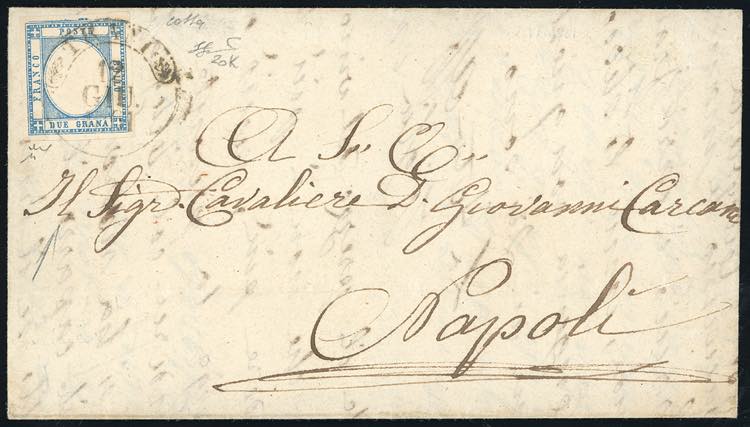 POSTE
FRANCO
BOLLO
DUE GRANA
GIU
20K
A S. E.
Il Sigr. Cavaliere D. Giovanni Carcano
Napoli